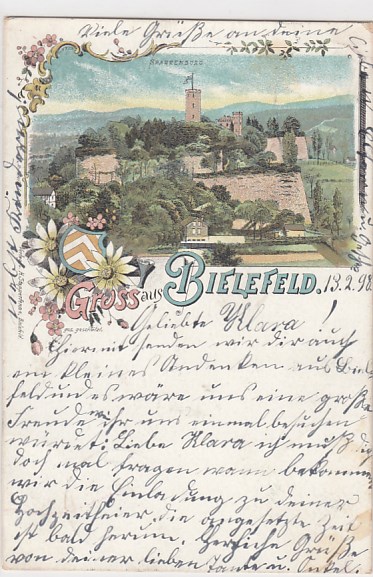 Viele Grüße an deine
SPARRENBURG
Gruss aus BIELEFELD. 13.2.98.
Geliebte Klara!
Hiermit senden wir dir auch
ein kleines Andenken aus Biele
feld und es wäre uns eine große
Freude wenn ihr uns einmal besuchen
würdet. Liebe Klara ich muß dich
doch mal fragen wann bekommen
wir die Einladung zu deiner
Hochzeitfeier die angesetzte Zeit
ist bald herum. Herzliche Grüße
von deiner lieben Tante u. Onkel.